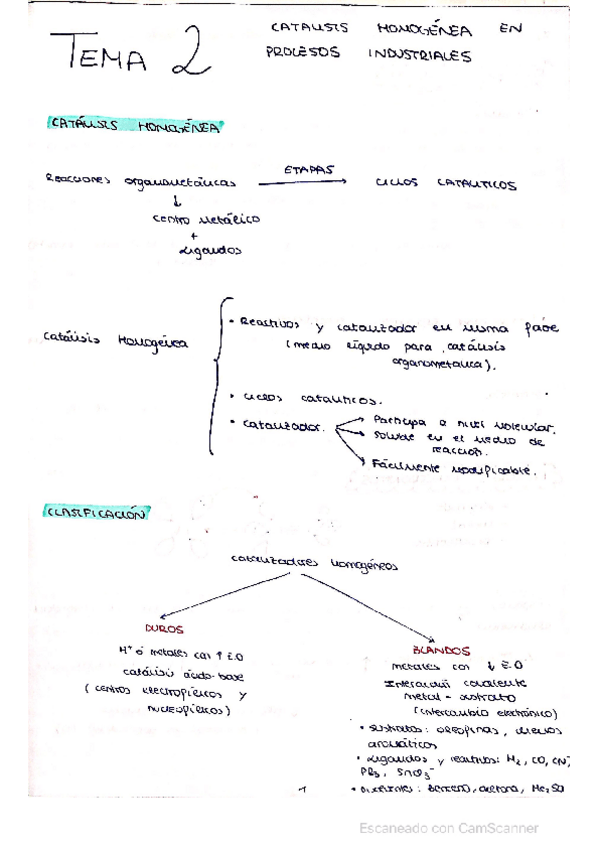 TEMA 2
CATALISIS HOMOGÉNEA EN
PROCESOS INDUSTRIALES
CATÁLISIS HOMOGÉNEA
Reacciones organometálicas
ETAPAS
CICLOS CATALITICOS
Centro Metálico
+
Ligandos
Catálisis Homogénea
• Reactivos y catalizador en misma fase
(medio líquido para catálisis
organometalica).
• Ciclos cataliticos.
• Catalizador.
Participa a nivel molecular.
Soluble en el medio de
reacción.
Fácilmente modificable.
CLASIFICACIÓN
Catalizadores homogéneos
DUROS
H⁺ ó metales con ↑ E.O
catálisis ácido-base
(centros electrofílicos y
nucleofílicos)
BLANDOS
metales con ↓ E.O
Interacción covalente
metal - sustrato
(intercambio electrónico)
• sustratos: olefinas, dienos
aromáticos
• Ligandos y reactivos: H₂, CO, CN⁻,
PR₃, SnCl₃⁻
• Disolventes: benceno, acetona, Me₂SO
1
Escaneado con CamScanner